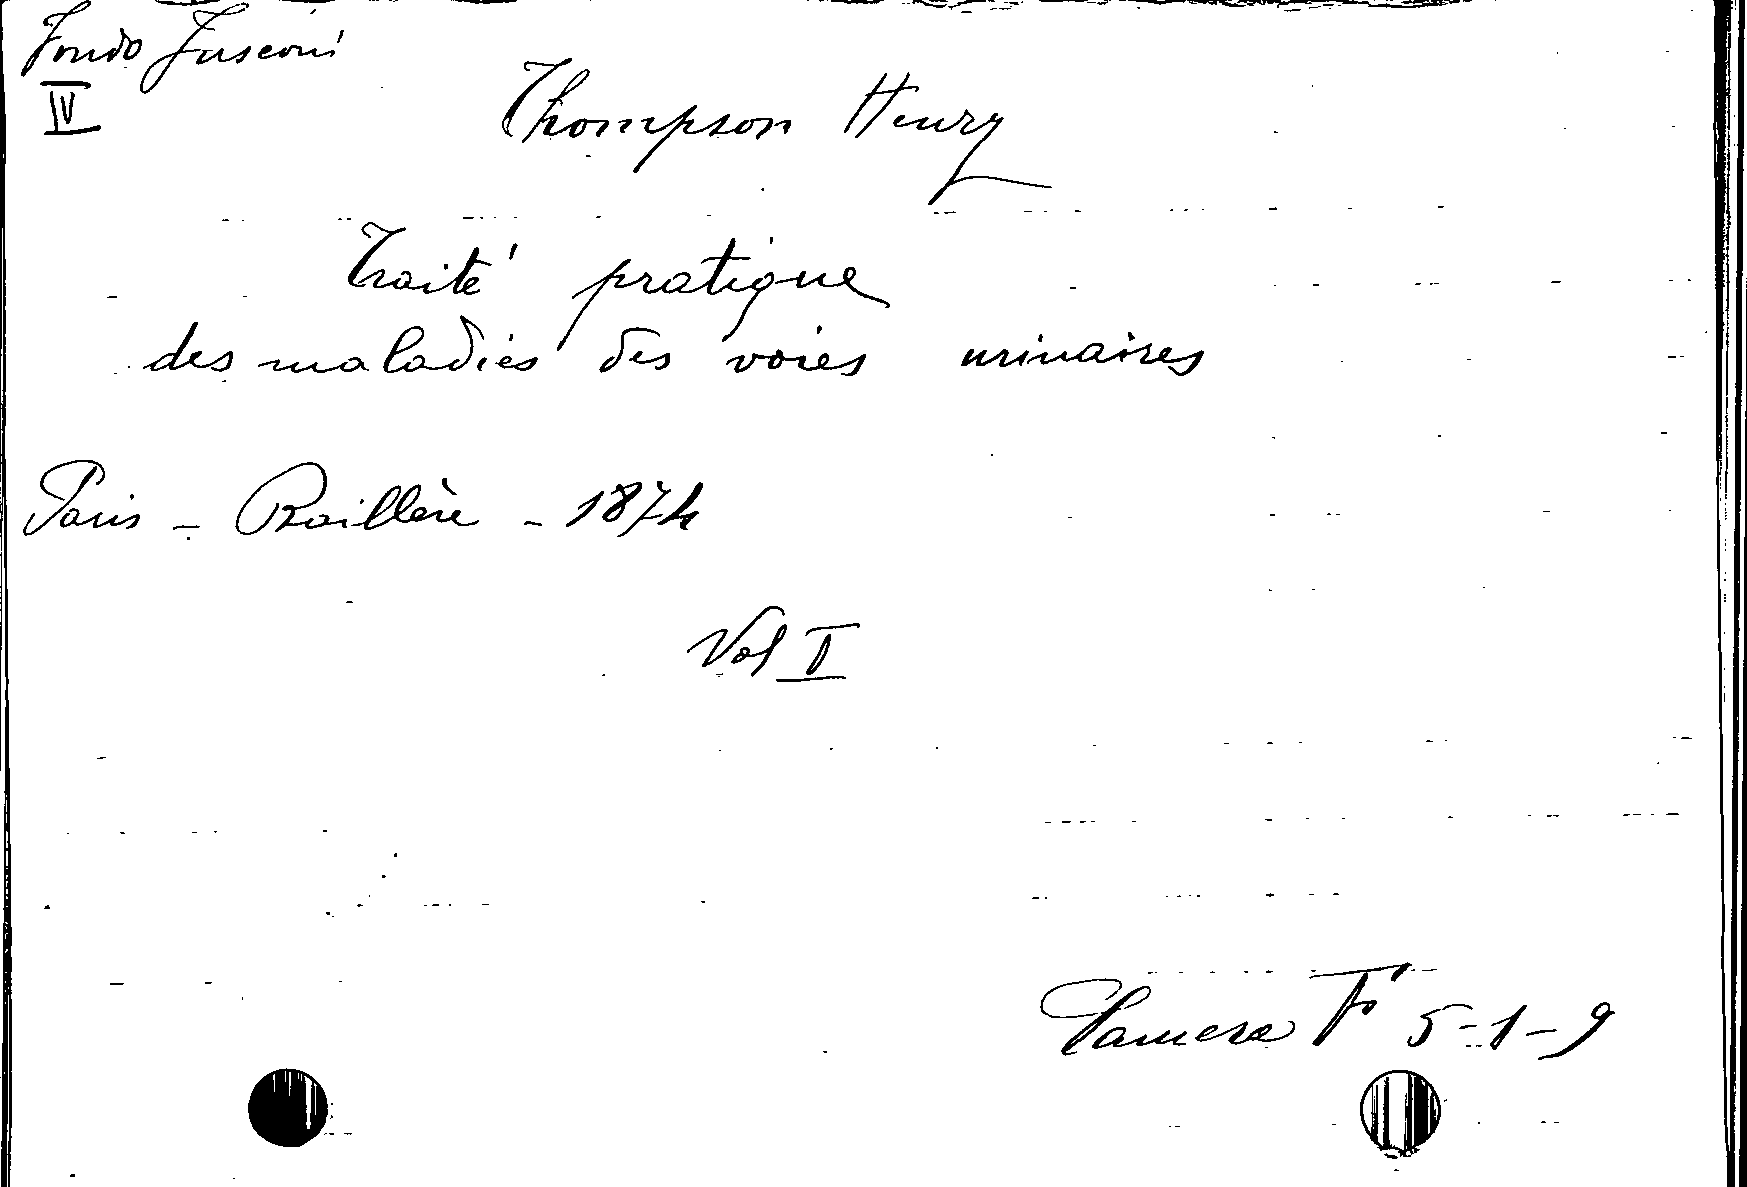 Fondo Fusconi
IV
Thompson Henry
Traité pratique
des maladies des voies urinaires
Paris - Baillère - 1874
Vol I
Camera F 5-1-9